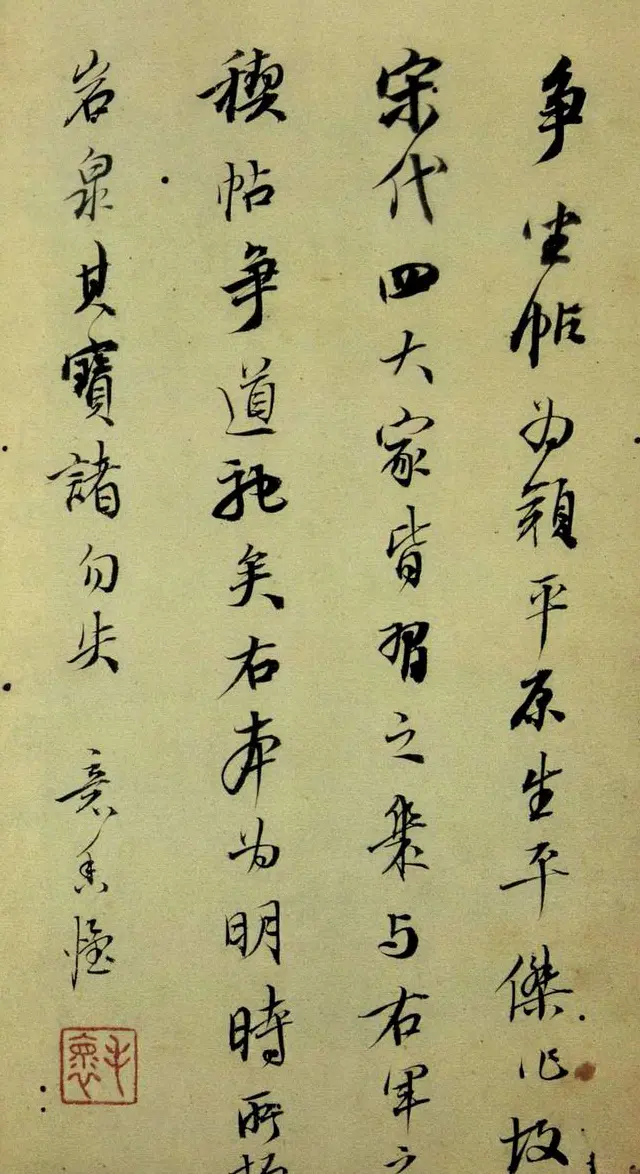 争坐帖为顏平原生平傑作故
宋代四大家皆習之与右軍之
稧帖争道馳矣右本为明時所
岩泉其寶諸勿失